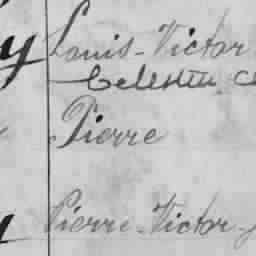 y Louis-Victor
Celestin
Pierre
y Pierre-Victor-